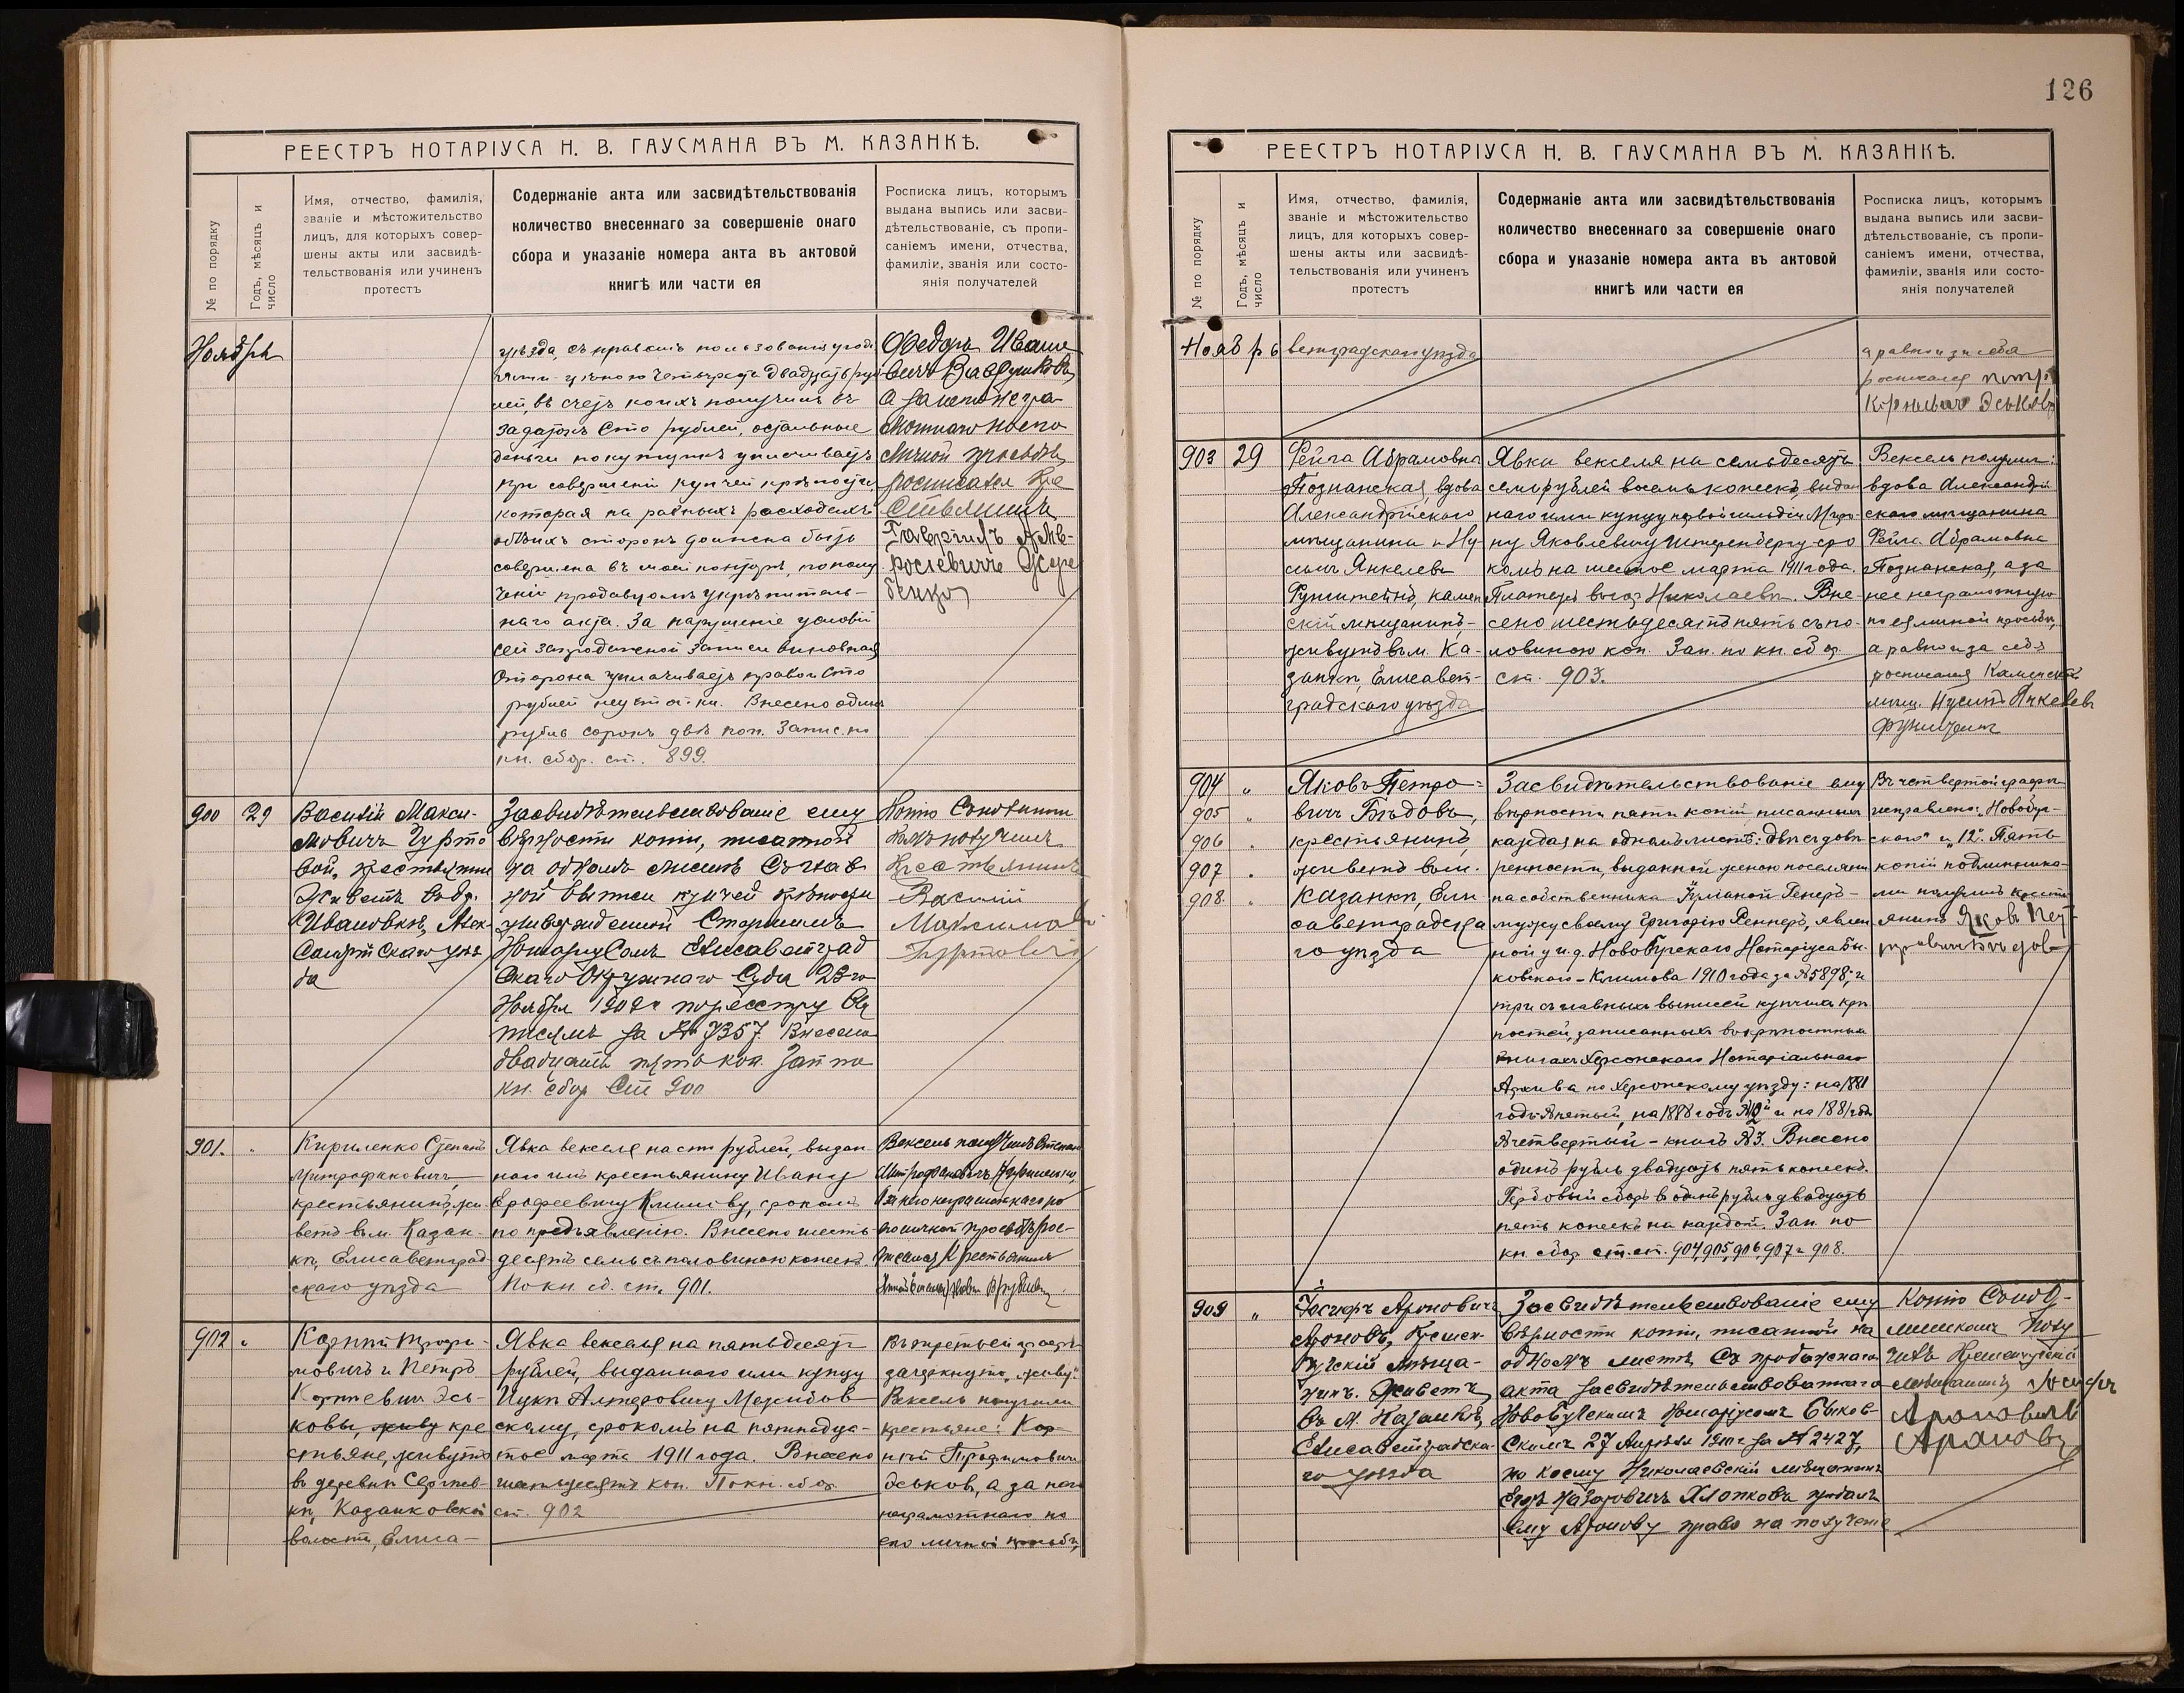 РЕЕСТРЪ НОТАРІУСА Н. В. ГАУСМАНА ВЪ М. КАЗАНКѢ.
№ по порядку
Годъ, мѣсяцъ и
число
Имя, отчество, фамилія,
званіе и мѣстожительство
лицъ, для которыхъ совер-
шены акты или засвидѣ-
тельствованія или учиненъ
протестъ
Содержаніе акта или засвидѣтельствованія
количество внесеннаго за совершеніе онаго
сбора и указаніе номера акта въ актовой
книгѣ или части ея
Росписка лицъ, которымъ
выдана выпись или засви-
дѣтельствованіе, съ пропи-
саніемъ имени, отчества,
фамиліи, званія или состо-
янія получателей
Ноябрь
уѣзда, съ правомъ пользованія
цѣною четыреста двадцать руб
лей, въ счетъ коихъ получилъ въ
задатокъ сто рублей, остальные
деньги покупщикъ уплачиваетъ
при совершеніи купчей крѣпости,
которая на равныхъ расходахъ
обѣихъ сторонъ должна быть
совершена въ моей конторѣ, по полу
ченіи продавцомъ укрѣпитель-
наго акта. За нарушеніе условій
сей запродажной записи виновная
сторона уплачиваетъ правой сто
рублей неустойки. Внесено одинъ
рубль сорокъ двѣ коп. Запис. по
кн. сбор. ст. 899.
Федоръ Ивано
вичъ
а за него негра-
мотнаго по его
личной просьбѣ
росписался Кре
стьянинъ
Гавріилъ Амв-
росіевичъ
900
29
Василій Макси-
мовичъ Гурто
вой, крестьянинъ
живетъ въ д.
Ивановкѣ, Алек-
сандрійскаго уѣз
да
Засвидѣтельствованіе ему
вѣрности копіи, писанной
на одномъ листѣ съ глав
ной выписи купчей крѣпости
утвержденной Старшимъ
Нотаріусомъ Елисаветград
скаго Окружнаго Суда 23-го
Ноября 190 г. по реестру вы
писямъ за № 7357. Внесено
двадцать пять коп. Зап. по
кн. сбор. ст. 900
Копію съ подлин
комъ получилъ
Крестьянинъ
Василій
Максимов
Гуртовой
901.
"
Кириленко Степанъ
Митрофановичъ
крестьянинъ, жи-
ветъ въ м. Казан-
кѣ, Елисаветград
скаго уѣзда
Явка векселя на сто рублей, выдан-
наго имъ крестьянину Ивану
Ерофеевичу Климову, срокомъ
по предъявленію. Внесено шесть
десятъ семь съ половиною копеекъ.
По кн. сб. ст. 901.
Вексель получилъ Степанъ
Митрофановичъ Кириленко
а за него неграмотнаго по
его личной просьбѣ рос-
писался Крестьянинъ
902
"
Карпъ Трофи-
мовичъ и Петръ
Карпевичъ Эсь-
ковы, живу кре
стьяне, живутъ
въ деревнѣ Сергѣев-
кѣ, Казанковской
волости, Елиса-
Явка векселя на пятьдесятъ
рублей, выданнаго ими купцу
Ицкѣ Алтеровичу Меджибов
скому, срокомъ на пятнадца-
тое марта 1911 года. Внесено
шестьдесятъ коп. По кн. сбор.
ст. 902
Въ третьей графѣ
зачеркнуто „живу“
Вексель получили
крестьяне: Кар-
пъ Трофимовичъ
Эськов, а за него
неграмотнаго по
его личной просьбѣ,
126
РЕЕСТРЪ НОТАРІУСА Н. В. ГАУСМАНА ВЪ М. КАЗАНКѢ.
№ по порядку
Годъ, мѣсяцъ и
число
Имя, отчество, фамилія,
званіе и мѣстожительство
лицъ, для которыхъ совер-
шены акты или засвидѣ-
тельствованія или учиненъ
протестъ
Содержаніе акта или засвидѣтельствованія
количество внесеннаго за совершеніе онаго
сбора и указаніе номера акта въ актовой
книгѣ или части ея
Росписка лицъ, которымъ
выдана выпись или засви-
дѣтельствованіе, съ пропи-
саніемъ имени, отчества,
фамиліи, званія или состо-
янія получателей
Ноябрь
ветградскаго уѣзда
а равно и за себя
росписался Петръ
Карпевичъ Эськовъ
903
29
Рейза Абрамовна
Познанская, вдова
Александрійскаго
мѣщанина и Ну
симъ Янкелевъ
Фунштейнъ, камен
скій мѣщанинъ,-
живутъ въ м. Ка-
занкѣ, Елисавет-
градскаго уѣзда
Явка векселя на семьдесятъ
семь рублей восемь копеекъ, выдан
наго ими купцу первой гильдіи Миро-
ну Яковлевичу Штеренбергу сро
комъ на шестое марта 1911 года.
Платежъ въ гор. Николаевѣ. Вне-
сено шестьдесятъ пять съ по-
ловиною коп. Зап. по кн. сбор.
ст. 903.
Вексель получили:
вдова Александрій
скаго мѣщанина
Рейза Абрамовна
Познанская, а за
нее неграмотную
по ея личной просьбѣ,
а равно и за себя
росписался Каменскій
мѣщ. Нусимъ Янкелевъ
904
905
906
907
908
"
Яковъ Петро-
вичъ Бѣдовъ,
крестьянинъ,
живетъ въ м.
Казанкѣ, Ели
саветградска
го уѣзда
Засвидѣтельствованіе ему
вѣрности пяти копій писанныхъ
каждая на одномъ листѣ: двѣ съ довѣ
ренности, выданной женою поселяни
на собственника Юліаной Геннеръ -
мужу своему Григорію Геннеръ, явлен
ной у и. д. Новобугскаго Нотаріуса Бы-
ковскаго - Климова 1910 года за № 5898, и
три съ главныхъ выписей купчихъ крѣ
постей, записанныхъ въ крѣпостныхъ
книгахъ Херсонскаго Нотаріальнаго
Архива по Херсонскому уѣзду: на 1881
годъ № пятый, на 1888 годъ № 12й и на 1881 годъ
№ четвертый - книгѣ № 3. Внесено
одинъ рубль двадцать пять копеекъ.
Гербовый сборъ въ одинъ рубль двадцать
пять копеекъ на каждой. Зап. по
кн. сбор. ст. ст. 904, 905, 906, 907 и 908.
Въ четвертой графѣ
исправлено: „Новобуг-
скаго“ и „12“. Пять
копій подлинника-
ми получилъ кресть
янинъ Яковъ Пет
ровичъ Бѣдов
909
"
Іосифъ Ароновичъ
Ароновъ, Кремен-
чугскій мѣща-
нинъ. Живетъ
въ М. Казанкѣ,
Елисаветградска-
го уѣзда
Засвидѣтельствованіе ему
вѣрности копіи, писанной на
одномъ листѣ, съ продажнаго
акта засвидѣтельствованнаго
Новобугскимъ Нотаріусомъ Быков-
скимъ 27 Апрѣля 1910 г. за № 2427,
по коему Николаевскій мѣщанинъ
продалъ
ему Аронову право на полученіе
Копію съ под-
линникомъ полу
чилъ Кременчугскій
мѣщанинъ Іосифъ
Ароновичъ
Ароновъ